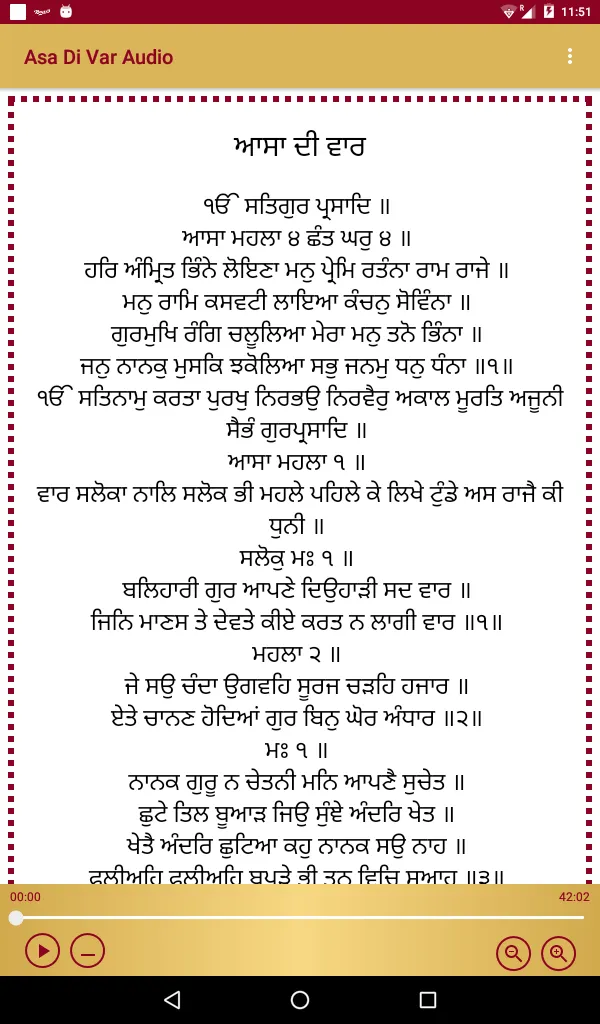 11:51
Asa Di Var Audio
ਆਸਾ ਦੀ ਵਾਰ
ੴ ਸਤਿਗੁਰ ਪ੍ਰਸਾਦਿ ॥
ਆਸਾ ਮਹਲਾ ੪ ਛੰਤ ਘਰੁ ੪ ॥
ਹਰਿ ਅੰਮ੍ਰਿਤ ਭਿੰਨੇ ਲੋਇਣਾ ਮਨੁ ਪ੍ਰੇਮਿ ਰਤੰਨਾ ਰਾਮ ਰਾਜੇ ॥
ਮਨੁ ਰਾਮਿ ਕਸਵਟੀ ਲਾਇਆ ਕੰਚਨੁ ਸੋਵਿੰਨਾ ॥
ਗੁਰਮੁਖਿ ਰੰਗਿ ਚਲੂਲਿਆ ਮੇਰਾ ਮਨੁ ਤਨੋ ਭਿੰਨਾ ॥
ਜਨੁ ਨਾਨਕੁ ਮੁਸਕਿ ਝਕੋਲਿਆ ਸਭੁ ਜਨਮੁ ਧਨੁ ਧੰਨਾ ॥੧॥
ੴ ਸਤਿਨਾਮੁ ਕਰਤਾ ਪੁਰਖੁ ਨਿਰਭਉ ਨਿਰਵੈਰੁ ਅਕਾਲ ਮੂਰਤਿ ਅਜੂਨੀ
ਸੈਭੰ ਗੁਰਪ੍ਰਸਾਦਿ ॥
ਆਸਾ ਮਹਲਾ ੧ ॥
ਵਾਰ ਸਲੋਕਾ ਨਾਲਿ ਸਲੋਕ ਭੀ ਮਹਲੇ ਪਹਿਲੇ ਕੇ ਲਿਖੇ ਟੁੰਡੇ ਅਸ ਰਾਜੈ ਕੀ
ਧੁਨੀ ॥
ਸਲੋਕੁ ਮਃ ੧ ॥
ਬਲਿਹਾਰੀ ਗੁਰ ਆਪਣੇ ਦਿਉਹਾੜੀ ਸਦ ਵਾਰ ॥
ਜਿਨਿ ਮਾਣਸ ਤੇ ਦੇਵਤੇ ਕੀਏ ਕਰਤ ਨ ਲਾਗੀ ਵਾਰ ॥੧॥
ਮਹਲਾ ੨ ॥
ਜੇ ਸਉ ਚੰਦਾ ਉਗਵਹਿ ਸੂਰਜ ਚੜਹਿ ਹਜਾਰ ॥
ਏਤੇ ਚਾਨਣ ਹੋਦਿਆਂ ਗੁਰ ਬਿਨੁ ਘੋਰ ਅੰਧਾਰ ॥੨॥
ਮਃ ੧ ॥
ਨਾਨਕ ਗੁਰੂ ਨ ਚੇਤਨੀ ਮਨਿ ਆਪਣੈ ਸੁਚੇਤ ॥
ਛੁਟੇ ਤਿਲ ਬੂਆੜ ਜਿਉ ਸੁੰਞੇ ਅੰਦਰਿ ਖੇਤ ॥
ਖੇਤੈ ਅੰਦਰਿ ਛੁਟਿਆ ਕਹੁ ਨਾਨਕ ਸਉ ਨਾਹ ॥
ਫਲੀਅਹਿ ਫੁਲੀਅਹਿ ਬਪੁੜੇ ਭੀ ਤਨ ਵਿਚਿ ਸੁਆਹ ॥੩॥
00:00
42:02